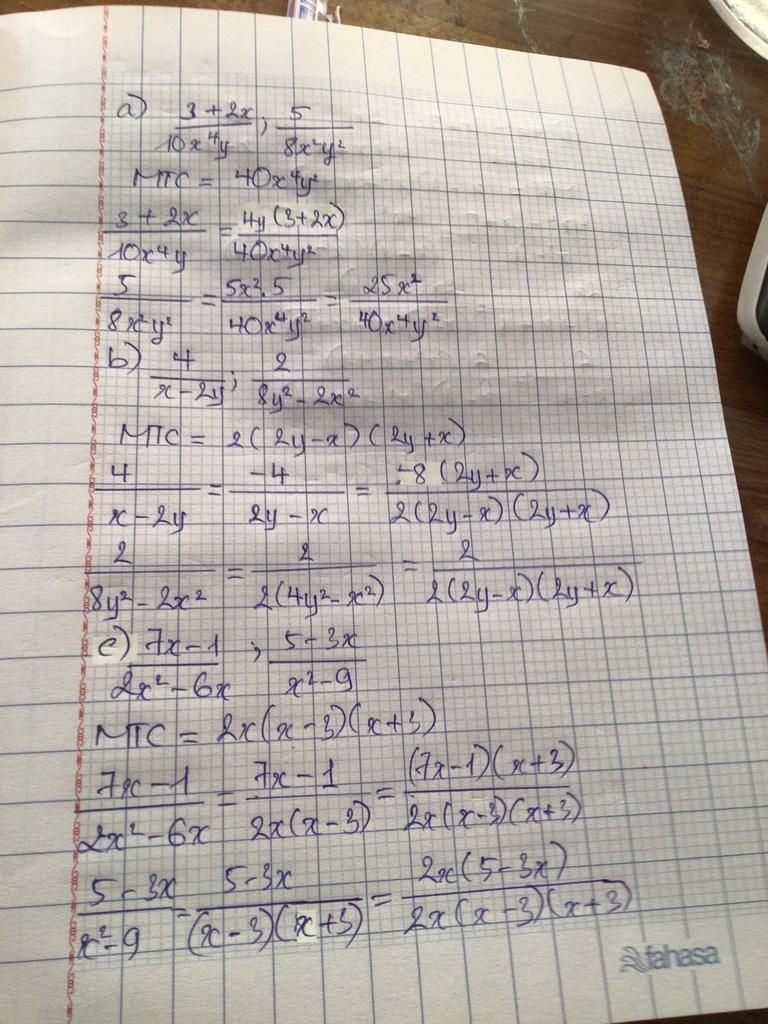 a) \frac{3+2x}{10x^4y}; \frac{5}{8x^2y^2}
MTC = 40x^4y^2
\frac{3+2x}{10x^4y} = \frac{4y(3+2x)}{40x^4y^2}
\frac{5}{8x^2y^2} = \frac{5x^2.5}{40x^4y^2} = \frac{25x^2}{40x^4y^2}
b) \frac{4}{x-2y}; \frac{2}{8y^2-2x^2}
MTC = 2(2y-x)(2y+x)
\frac{4}{x-2y} = \frac{-4}{2y-x} = \frac{-8(2y+x)}{2(2y-x)(2y+x)}
\frac{2}{8y^2-2x^2} = \frac{2}{2(4y^2-x^2)} = \frac{2}{2(2y-x)(2y+x)}
c) \frac{7x-1}{2x^2-6x}; \frac{5-3x}{x^2-9}
MTC = 2x(x-3)(x+3)
\frac{7x-1}{2x^2-6x} = \frac{7x-1}{2x(x-3)} = \frac{(7x-1)(x+3)}{2x(x-3)(x+3)}
\frac{5-3x}{x^2-9} = \frac{5-3x}{(x-3)(x+3)} = \frac{2x(5-3x)}{2x(x-3)(x+3)}
fahasa